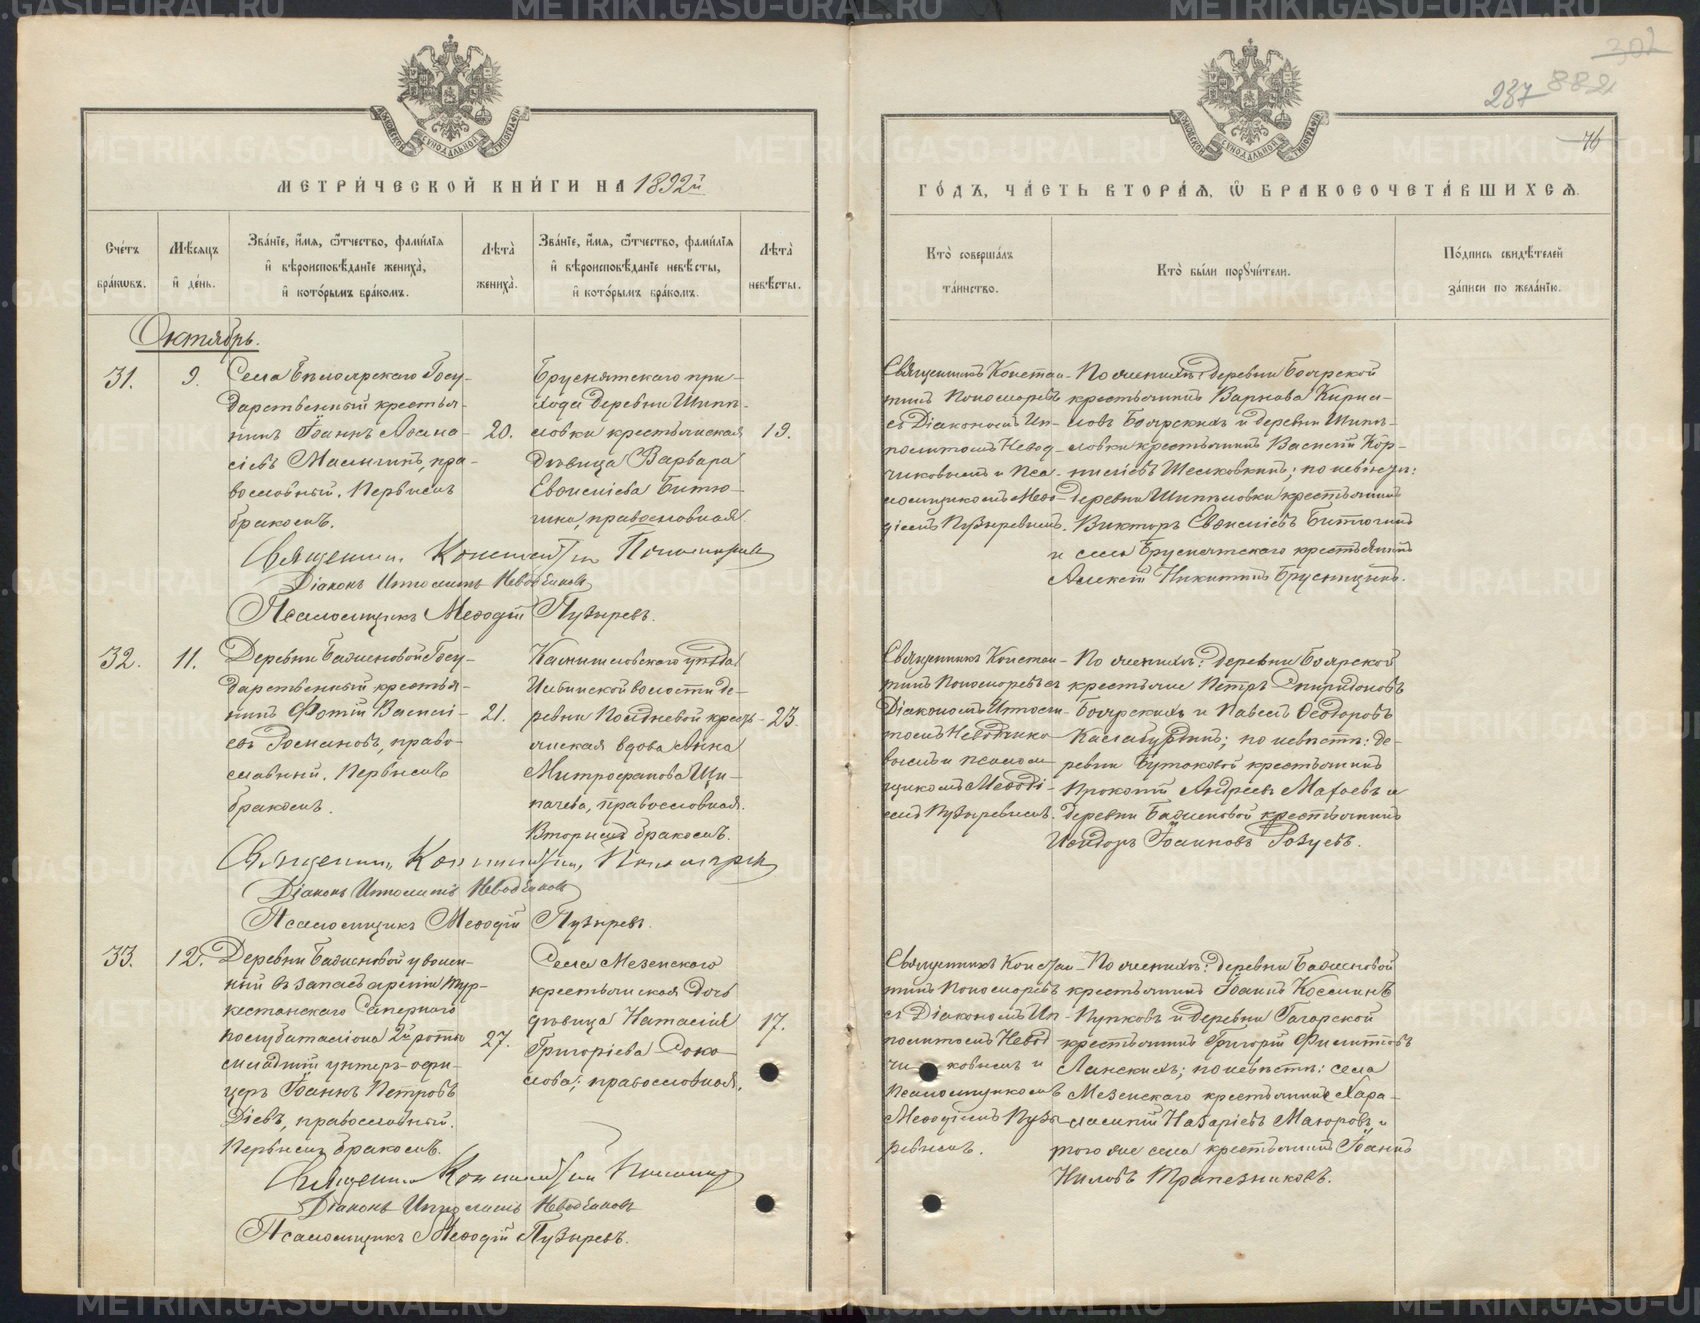 МЕТРИ́ЧЕСКОЙ КНИ́ГИ НА 1892й
Сче́тъ бра́кωвъ.
Мѣ́сѧцъ и҆ де́нь.
Зва́нїе, и҆́мѧ, ѻ҆́тчество, фами́лїѧ и҆ вѣроисповѣ́данїе жениха̀, и҆ кото́рымъ бра́комъ.
Лѣта̀ жениха̀.
Зва́нїе, и҆́мѧ, ѻ҆́тчество, фами́лїѧ и҆ вѣроисповѣ́данїе невѣ́сты, и҆ кото́рымъ бра́комъ.
Лѣта̀ невѣ́сты.
Октябрь.
31.
9.
Села Бѣлоярскаго Госу-
дарственный крестья-
нинъ Іоаннъ Аѳана-
сіевъ Малыгинъ, пра-
вославный. Первымъ
бракомъ.
20.
Бруснятскаго при-
хода деревни Шипи-
ловки крестьянская
дѣвица Варвара
Евѳиміева Битю-
гина, православная.
19.
Священникъ Константинъ Пономаревъ
Діаконъ Ипполитъ Неводчиковъ
Псаломщикъ Меѳодій Пузыревъ.
32.
11.
Деревни Баженовой Госу-
дарственный крестья-
нинъ Фотій Василі-
евъ Романовъ, право-
славный. Первымъ
бракомъ.
21.
Камышловскаго уѣзда
волости де-
ревни крестъ-
янская вдова Анна
Митрофанова Щи-
пачева, православная.
Вторымъ бракомъ.
23.
Священникъ Константинъ Пономаревъ
Діаконъ Ипполитъ Неводчиковъ
Псаломщикъ Меѳодій Пузыревъ.
33.
12.
Деревни Баженовой уволен-
ный въ запасъ арміи Тур-
кестанскаго Сапернаго
полубаталіона 2й роты
младшій унтеръ-офи-
церъ Іоаннъ Петровъ
Діевъ, православный.
Первымъ бракомъ.
27.
Села Мезенскаго
крестьянская дочь
дѣвица Наталія
Григоріева Соко-
лова; православная.
17.
Священникъ Константинъ Пономаревъ
Діаконъ Ипполитъ Неводчиковъ
Псаломщикъ Меѳодій Пузыревъ.
302
237 882
76
ГО́ДЪ, ЧА́СТЬ ВТОРА́Ѧ, Ѽ БРАКОСОЧЕТА́ВШИХСѦ.
Кто̀ соверша́лъ та́инство.
Кто̀ бы́ли порꙋчи́тели.
По́дпись свидѣ́телей за́писи по жела́нїю.
Священникъ Констан-
тинъ Пономаревъ
съ Діакономъ Ип-
политомъ Невод-
чиковымъ и Пса-
ломщикомъ Меѳо-
діемъ Пузыревымъ.
По женихѣ: деревни Боярской
крестьянинъ Варнава Кирил-
ловъ Боярскихъ и деревни Шипи-
ловки крестьянинъ Василій Кор-
ниліевъ ; по невѣстѣ:
деревни Шипиловки крестьянинъ
Викторъ Евѳиміевъ Битюгинъ
и села Бруснятскаго крестьянинъ
Алексій Никитинъ Брусницынъ.
Священникъ Констан-
тинъ Пономаревъ съ
Діакономъ Ипполи-
томъ Неводчико-
вымъ и псалом-
щикомъ Меѳоді-
емъ Пузыревымъ.
По женихѣ: деревни Боярской
крестьяне Петръ Спиридоновъ
Боярскихъ и Павелъ Ѳеодоровъ
; по невѣстѣ: де-
ревни Бутаковой крестьянинъ
Прокопій Андреевъ и
деревни Баженовой крестьянинъ
Исидоръ Іоанновъ
Священникъ Констан-
тинъ Пономаревъ
съ Діакономъ Ип-
политомъ Невод-
чиковымъ и
Псаломщикомъ
Меѳодіемъ Пузы-
ревымъ.
По женихѣ: деревни Баженовой
крестьянинъ Іоаннъ Космин
Пупковъ и деревни Гагарской
крестьянинъ Григорій Филипповъ
Ланскихъ; по невѣстѣ: села
Мезенскаго крестьянинъ Хара-
лампій Назаріевъ Маюровъ и
того же села крестьянинъ Іоаннъ
Ниловъ Трапезниковъ.
METRIKI.GASU-URAL.RU